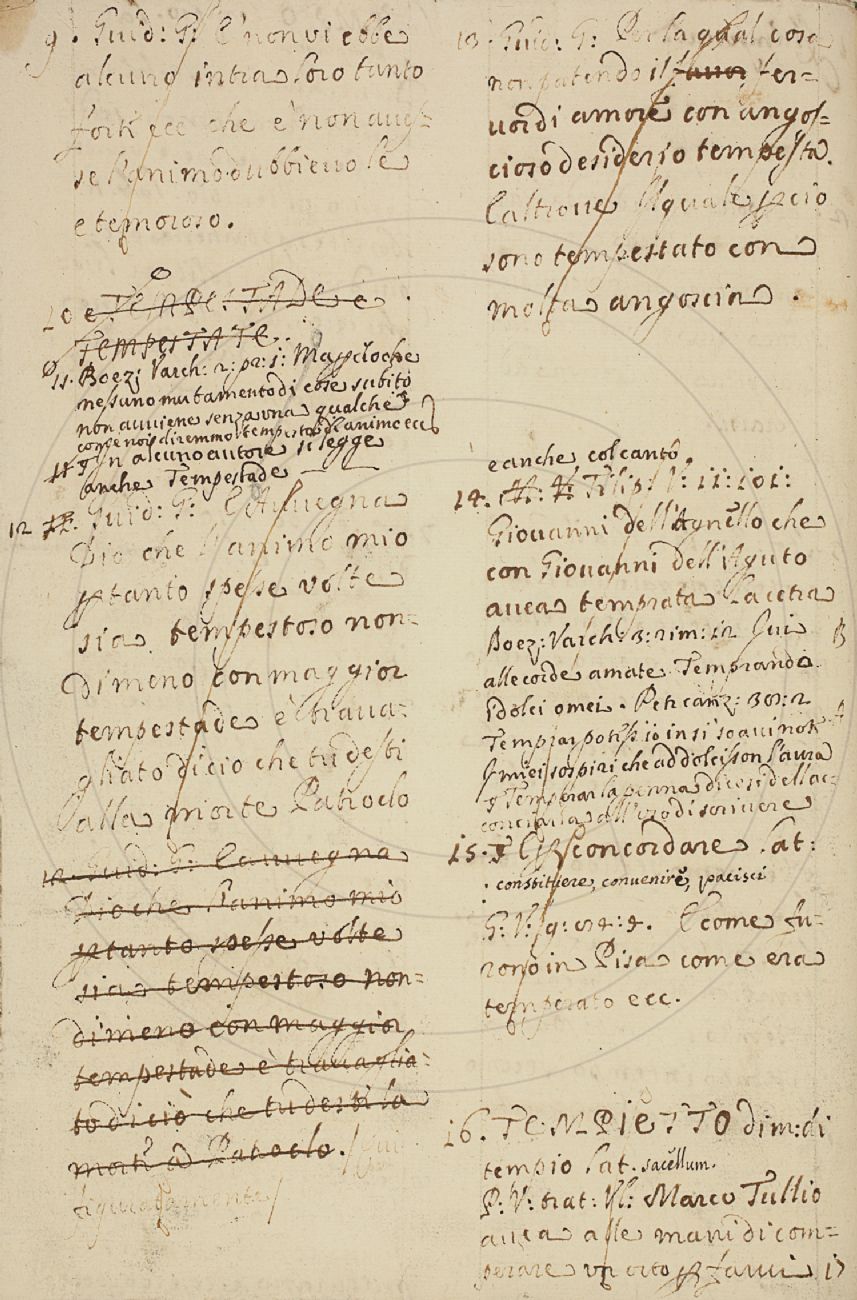 9. Guid: G: E non vi ebbe
alcuno intra loro tanto
forte ecc che e' non aves-
se l'animo dubbievole
e temoroso.
10 e TEMPESTADE e
TEMPESTATE.
11. Boez: Varch: 2: pr: 1: Ma perloche
nessuno mutamento di cose subito
non avviene senza una qualche
tempesta dell'animo ecc
§ In alcuno autore si legge
anche Tempestade
12 12. Guid: G: E Avvegna
Dio che l'animo mio
ꝑ tanto spesse volte
sia tempestoso non-
dimeno con maggior
tempestade è trava-
gliato di ciò che tu desti
alla morte Patroclo
12. Guid: G: E avvegna
Dio che l'animo mio
ꝑ tanto spesse volte
sia tempestoso non-
dimeno con maggior
tempestade è travaglia-
to di ciò che tu desti la
morte a Patroclo.
figuratamente/
13. Guid: G: Per la qual cosa
non patendo il favor fer-
vor di amore con angos-
cioso desiderio tempesta.
E altrove Il quale ꝑ ciò
sono tempestato con
molta angoscia.
e anche col canto.
14. M: F: Filip: V: 11: 101:
Giovanni dell'Agnello che
con Giovanni dell'Aguto
avea temprata la cetra
Boez: Varch: 3: rim: 12 Quivi
alle corde amate Temprando
i dolci omei. Petr canz: 302: 2
Temprar potess' io in sì soavi note
I miei sospiri che addolcisson Laura
§ Temprar la penna dicesi dell'ac-
conciarla all'uso di scrivere
15. § Concordare Lat:
constituere, convenire, pacisci
G: V: 9: 1. E come fu-
rono in Pisa come era
temperato ecc.
16. TEMPIETTO dim: di
tempio Lat. sacellum.
P: V: trat: Vl: Marco Tullio
avea alle mani di com-
perare un orto ꝑ farvi